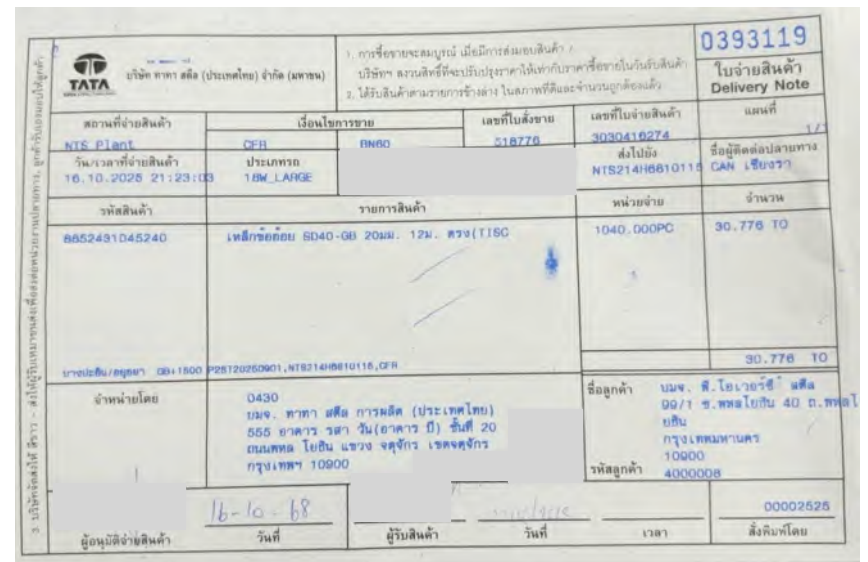 0393119
TATA
บริษัท ทาทา สตีล (ประเทศไทย) จำกัด (มหาชน)
1. การซื้อขายจะสมบูรณ์ เมื่อมีการส่งมอบสินค้า /
บริษัทฯ สงวนสิทธิ์ที่จะปรับปรุงราคาให้เท่ากับราคาซื้อขายในวันรับสินค้า
2. ได้รับสินค้าตามรายการข้างล่าง ในสภาพที่ดีและจำนวนถูกต้องแล้ว
ใบจ่ายสินค้า
Delivery Note
สถานที่จ่ายสินค้า เงื่อนไขการขาย เลขที่ใบสั่งขาย เลขที่ใบจ่ายสินค้า แผ่นที่
NTS Plant CFR BN60 518776 3030416274 1/1
วัน/เวลาที่จ่ายสินค้า ประเภทรถ ส่งไปยัง ชื่อผู้ติดต่อปลายทาง
16.10.2025 21:23:03 18W_LARGE NTS214H6810115 CAN เชียงรา
รหัสสินค้า รายการสินค้า หน่วยจ่าย จำนวน
8852431045240 เหล็กข้ออ้อย SD40-GB 20มม. 12ม. ตรง(TISC 1040.000PC 30.776 TO
30.776 TO
บางปะอิน/อยุธยา GB+1500 P25120250901,NTS214H6810115,CFR
จำหน่ายโดย
0430
บมจ. ทาทา สตีล การผลิต (ประเทศไทย)
555 อาคาร รสา วัน(อาคาร บี) ชั้นที่ 20
ถนนพหล โยธิน แขวง จตุจักร เขตจตุจักร
กรุงเทพฯ 10900
ชื่อลูกค้า บมจ. พี.โอเวอร์ซี สตีล
99/1 ซ.พหลโยธิน 40 ถ.พหลโ
ยธิน
กรุงเทพมหานคร
10900
รหัสลูกค้า 4000008
16-10-68
00002525
ผู้อนุมัติจ่ายสินค้า วันที่ ผู้รับสินค้า วันที่ เวลา สั่งพิมพ์โดย